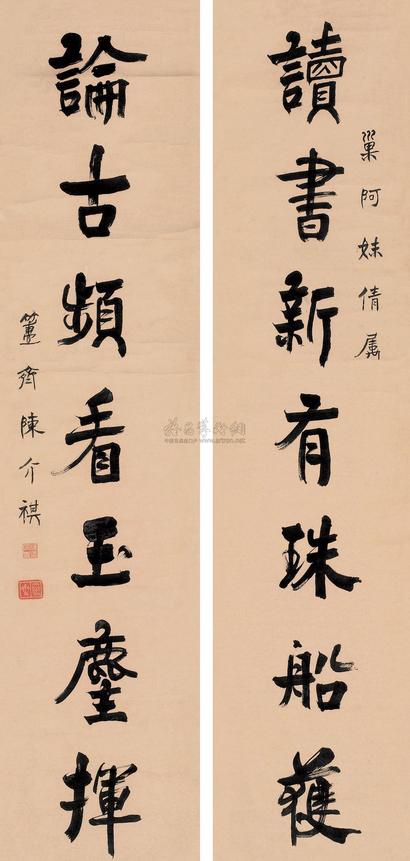 巢阿妹倩属
讀書新有珠船獲
論古頻看玉麈揮
簠齋陳介祺
www.artron.net